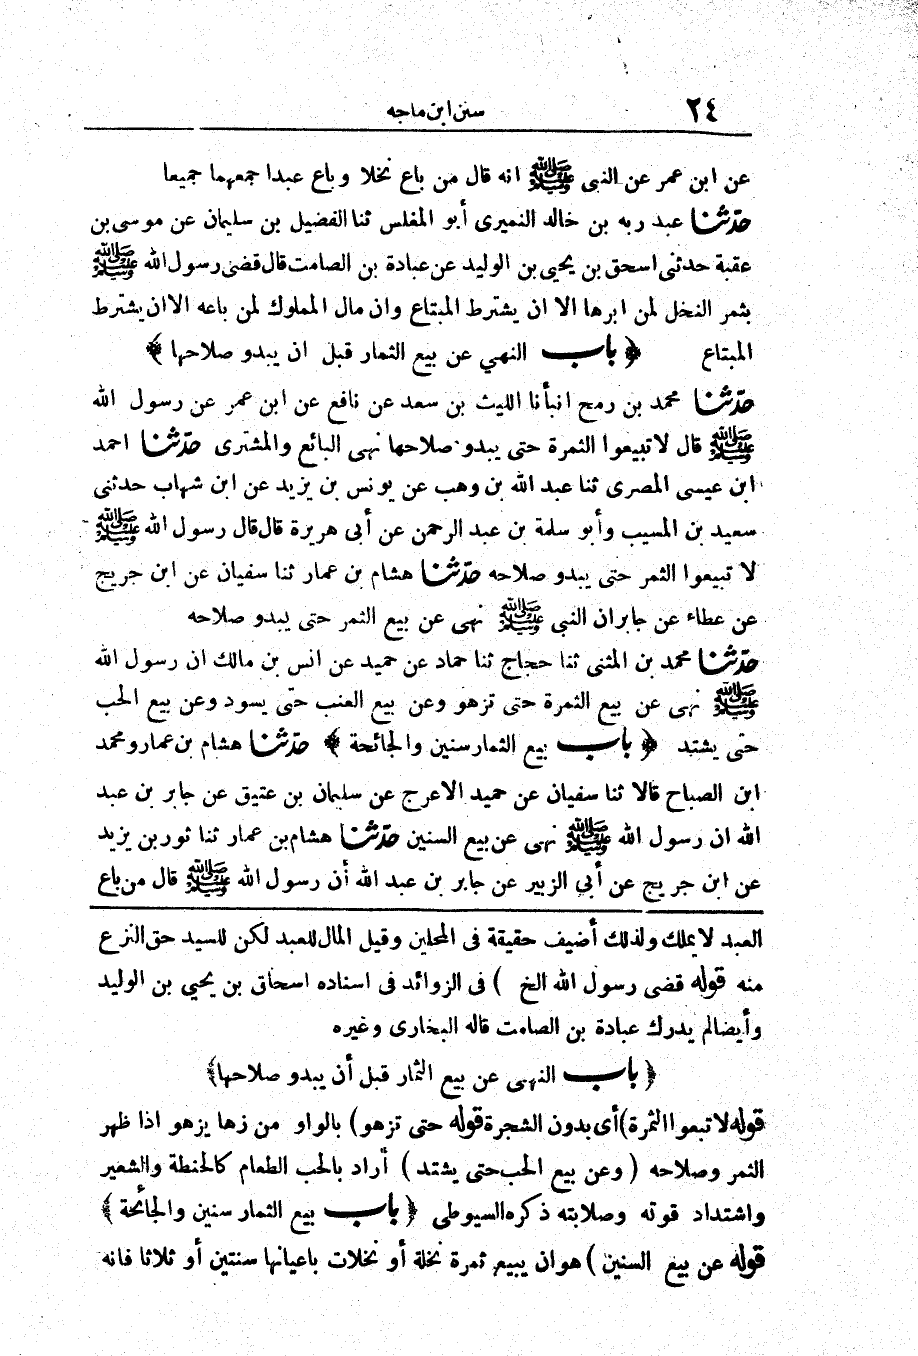 ٢٤
سنن ابن ماجه
عن ابن عمر عن النبى ﷺ انه قال من باع نخلا وباع عبدا جمعهما جميعا
حدّثنا عبد ربه بن خالد النميرى أبو المغلس ثنا الفضيل بن سليمان عن موسى بن
عقبة حدثنى اسحق بن يحيى بن الوليد عن عبادة بن الصامت قال قضى رسول الله ﷺ
بثمر النخل لمن ابرها الا ان يشترط المبتاع وان مال المملوك لمن باعه الا ان يشترط
المبتاع ﴿ باب النهي عن بيع الثمار قبل ان يبدو صلاحها ﴾
حدّثنا محمد بن رمح انبأنا الليث بن سعد عن نافع عن ابن عمر عن رسول الله
ﷺ قال لا تبيعوا الثمرة حتى يبدو صلاحها نهى البائع والمشترى حدّثنا احمد
ابن عيسى المصرى ثنا عبد الله بن وهب عن يونس بن يزيد عن ابن شهاب حدثنى
سعيد بن المسيب وأبو سلمة بن عبد الرحمن عن أبى هريرة قال قال رسول الله ﷺ
لا تبيعوا الثمر حتى يبدو صلاحه حدّثنا هشام بن عمار ثنا سفيان عن ابن جريج
عن عطاء عن جابر ان النبى ﷺ نهى عن بيع الثمر حتى يبدو صلاحه
حدّثنا محمد بن المثنى ثنا حجاج ثنا حماد عن حميد عن انس بن مالك ان رسول الله
ﷺ نهى عن بيع الثمرة حتى تزهو وعن بيع العنب حتى يسود وعن بيع الحب
حتى يشتد ﴿ باب بيع الثمار سنين والجائحة ﴾ حدّثنا هشام بن عمار ومحمد
ابن الصباح قالا ثنا سفيان عن حميد الاعرج عن سليمان بن عتيق عن جابر بن عبد
الله ان رسول الله ﷺ نهى عن بيع السنين حدّثنا هشام بن عمار ثنا ثور بن يزيد
عن ابن جريج عن أبي الزبير عن جابر بن عبد الله أن رسول الله ﷺ قال من باع
العبد لا يملك ولذلك أضيف حقيقة فى المحلين وقيل المال للعبد لكن للسيد حق النزع
منه قوله قضى رسول الله الخ ) فى الزوائد فى اسناده اسحاق بن يحيي بن الوليد
وأيضا لم يدرك عبادة بن الصامت قاله البخارى وغيره
﴿ باب النهى عن بيع الثمار قبل أن يبدو صلاحها﴾
قوله لا تبعوا الثمرة) أى بدون الشجرة قوله حتى تزهو) بالواو من زها يزهو اذا ظهر
الثمر وصلاحه ( وعن بيع الحب حتى يشتد ) أراد بالحب الطعام كالحنطة والشعير
واشتداد قوته وصلابته ذكره السيوطى ﴿ باب بيع الثمار سنين والجائحة ﴾
قوله عن بيع السنين ) هو ان يبيع ثمرة نخلة أو نخلات باعيانها سنتين أو ثلاثا فانه